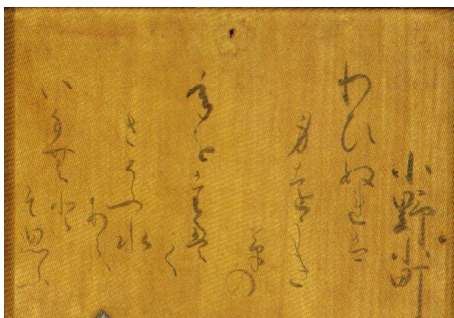 小野小町
わひぬれは
身をうき
草の
ねをたえ
て
さそふ水
あらは
いなむと
そ思ふ